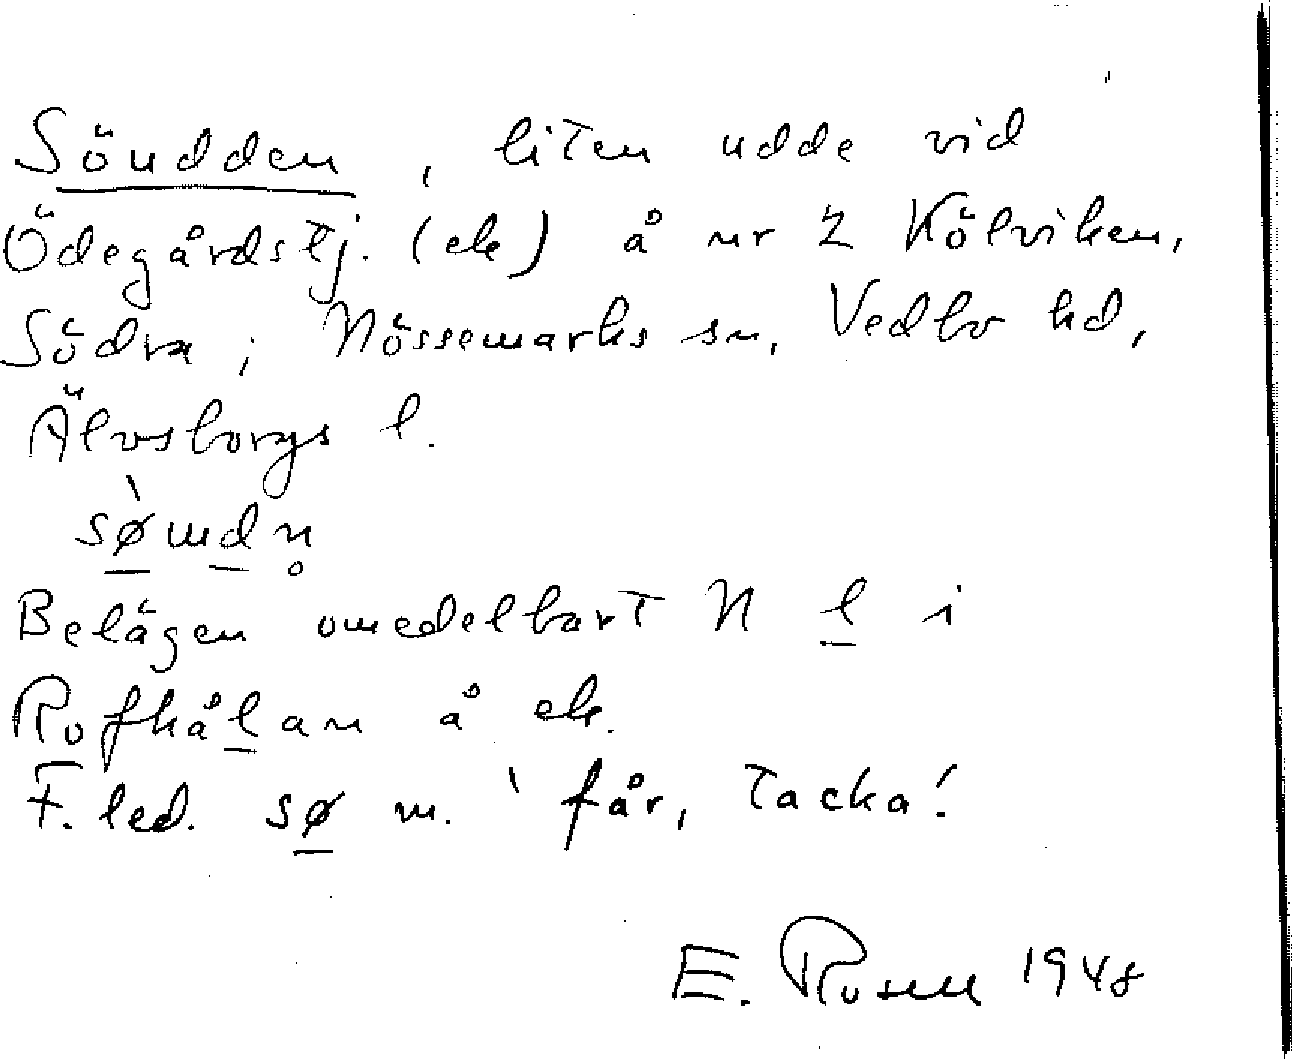 Söudden, liten udde vid
Ödegårdstj. (ek) å nr 2 Kölviken,
Södra, i Nössemarks sn, Vedbo hd,
Älvsborgs l.
sø̀udn̥
Belägen omedelbart N l i
Rofhålan å ek.
F. led. sø m. 'får, tacka'
E. Rosell 1948